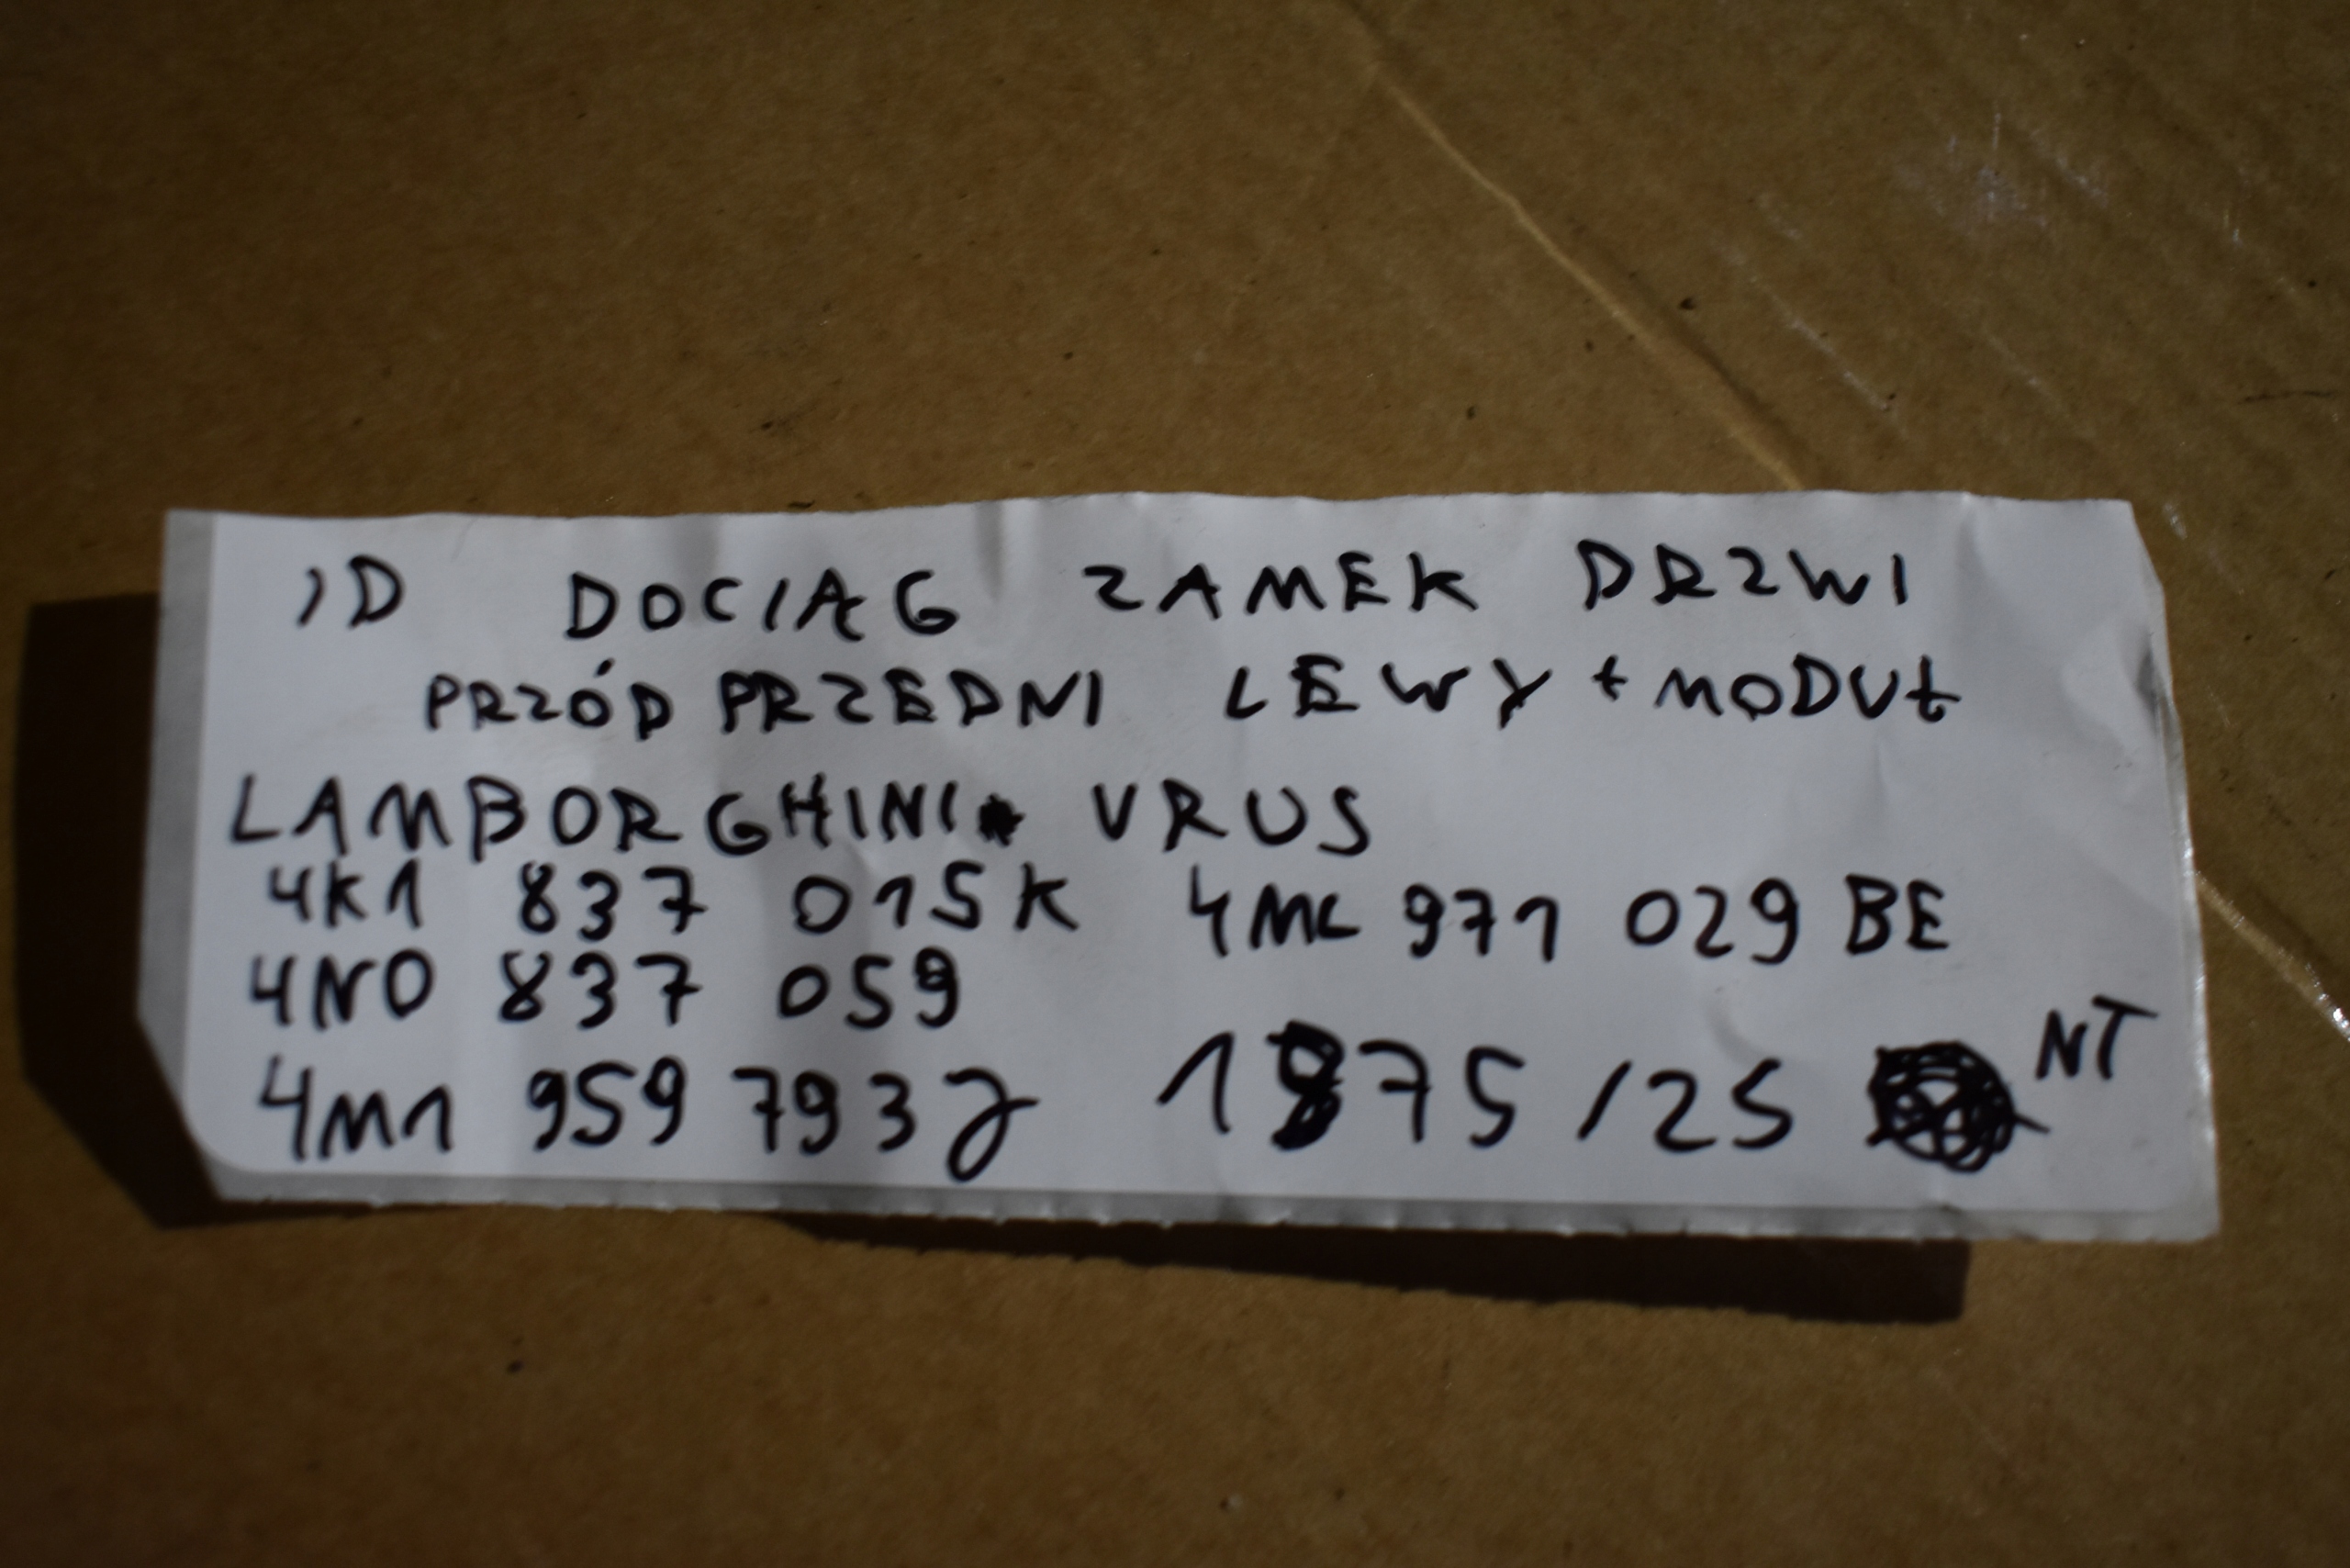 ID DOCIĄG ZAMEK DRZWI
PRZÓD PRZEDNI LEWY + MODUŁ
LAMBORGHINI URUS
4K1 837 015K 4ML 971 029 BE
4N0 837 059
4M1 959 793J 1875/25 NT